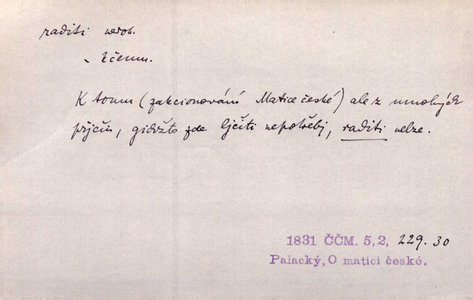 raditi nedok.
~ k čemu.
K tomu (zakcionování Matice české) ale z mnohých
přjčin, gichžto zde ljčiti nepotřebj, raditi nelze.
1831 ČČM. 5, 2, 229. 30
Palacký, O matici české.